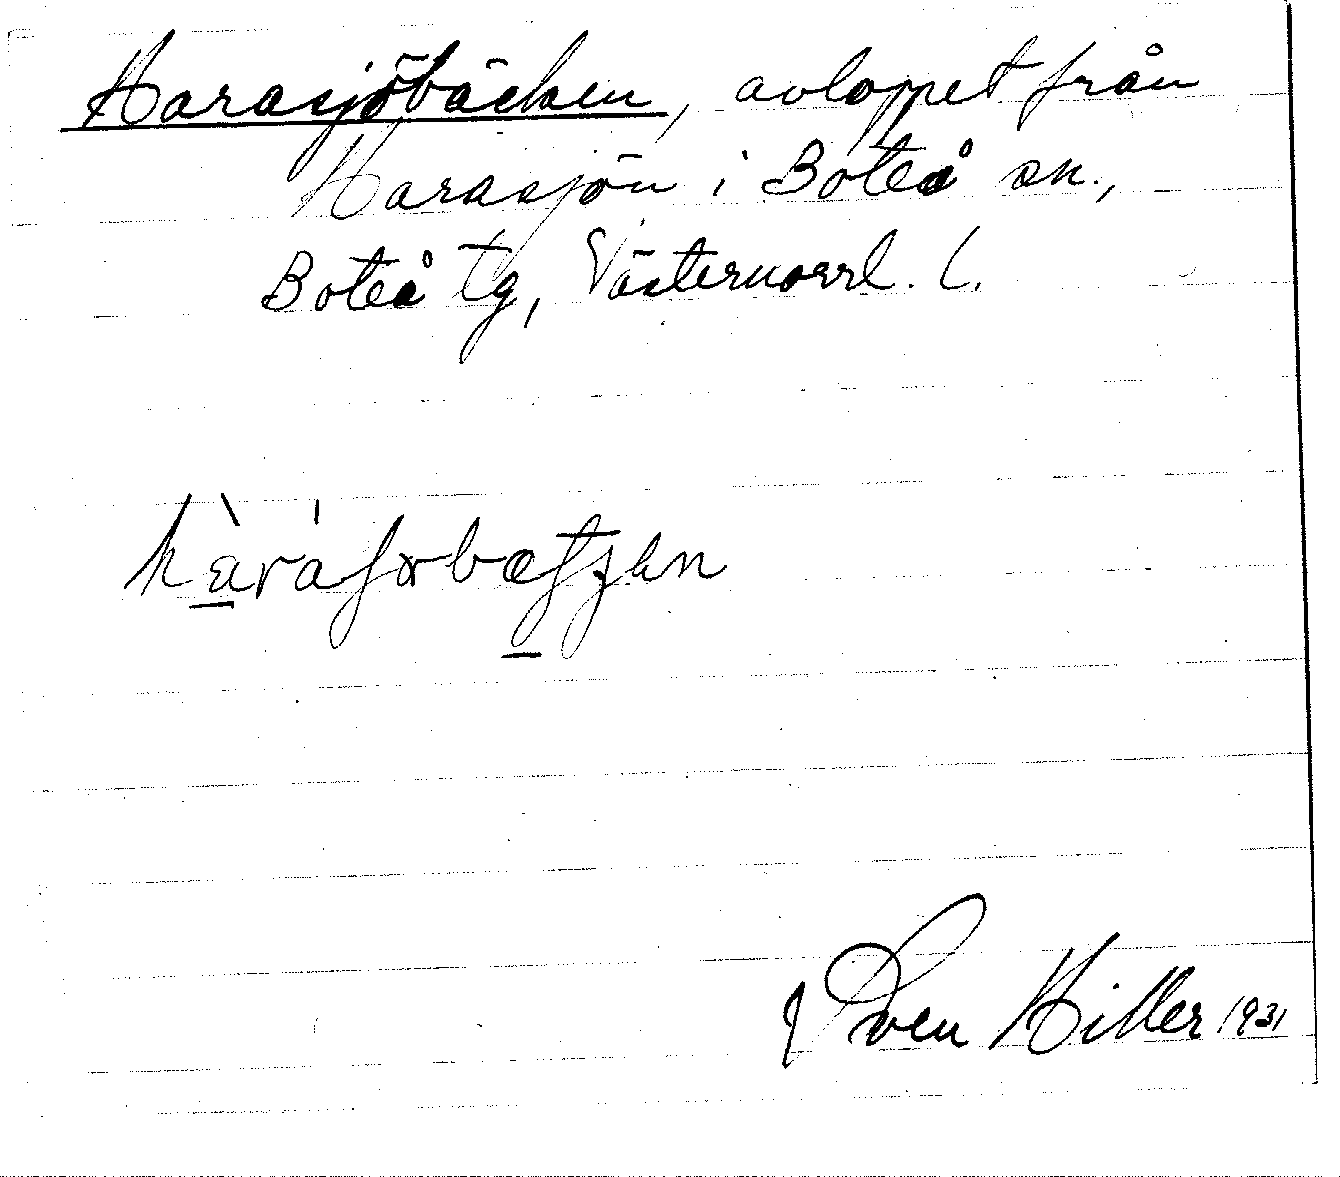 Harasjöbäcken, avloppet från
Harasjön i Boteå sn.,
Boteå tg, Västernorrl. l.
Sven Hiller 1931